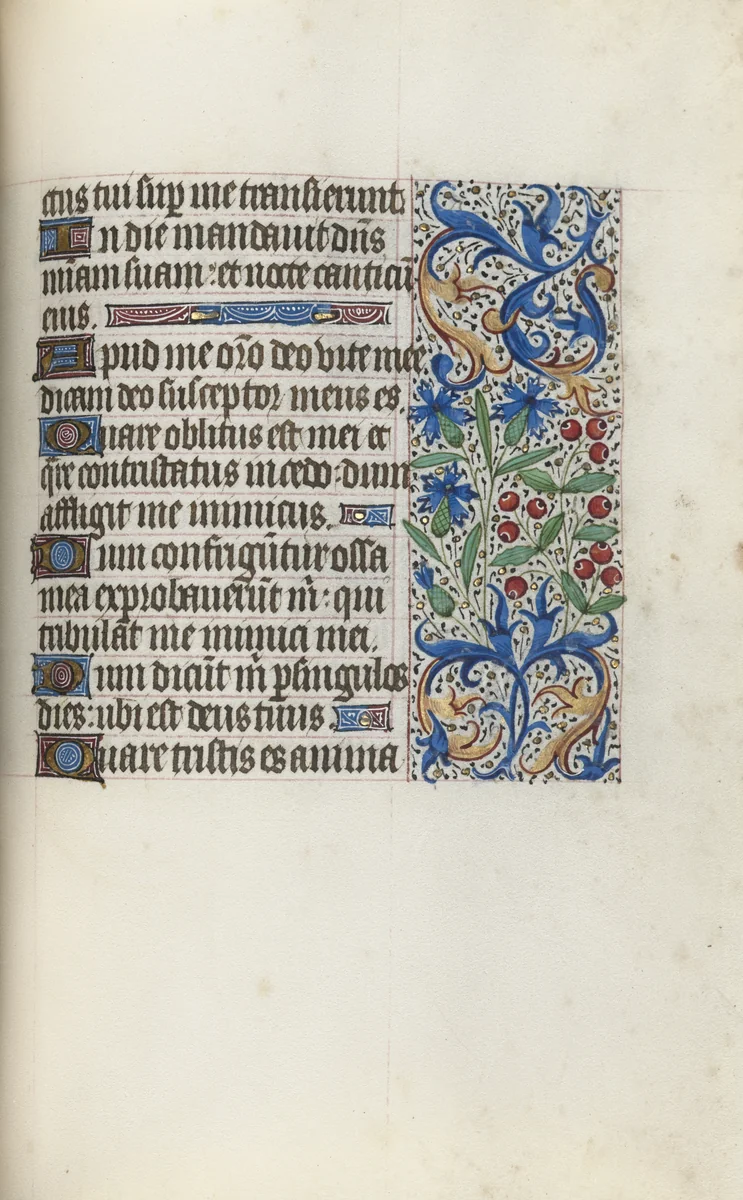 ctus tui sup̱ me transierunt
In die mandauit dn̄s
mīam suam : et nocte canticū
eius.
Apud me orō deo vite mee
dicam deo susceptor meus es.
Quare oblitus est mei et
q̄re contristatus incedo : dum
affligit me inimicus.
Dum confrigūtur ossa
mea exprobauerūt m̄ : qui
tribulāt me inimici mei.
Dum dicūt m̄ p̱ singulos
dies : ubi est deus tuus.
Quare tristis es anima